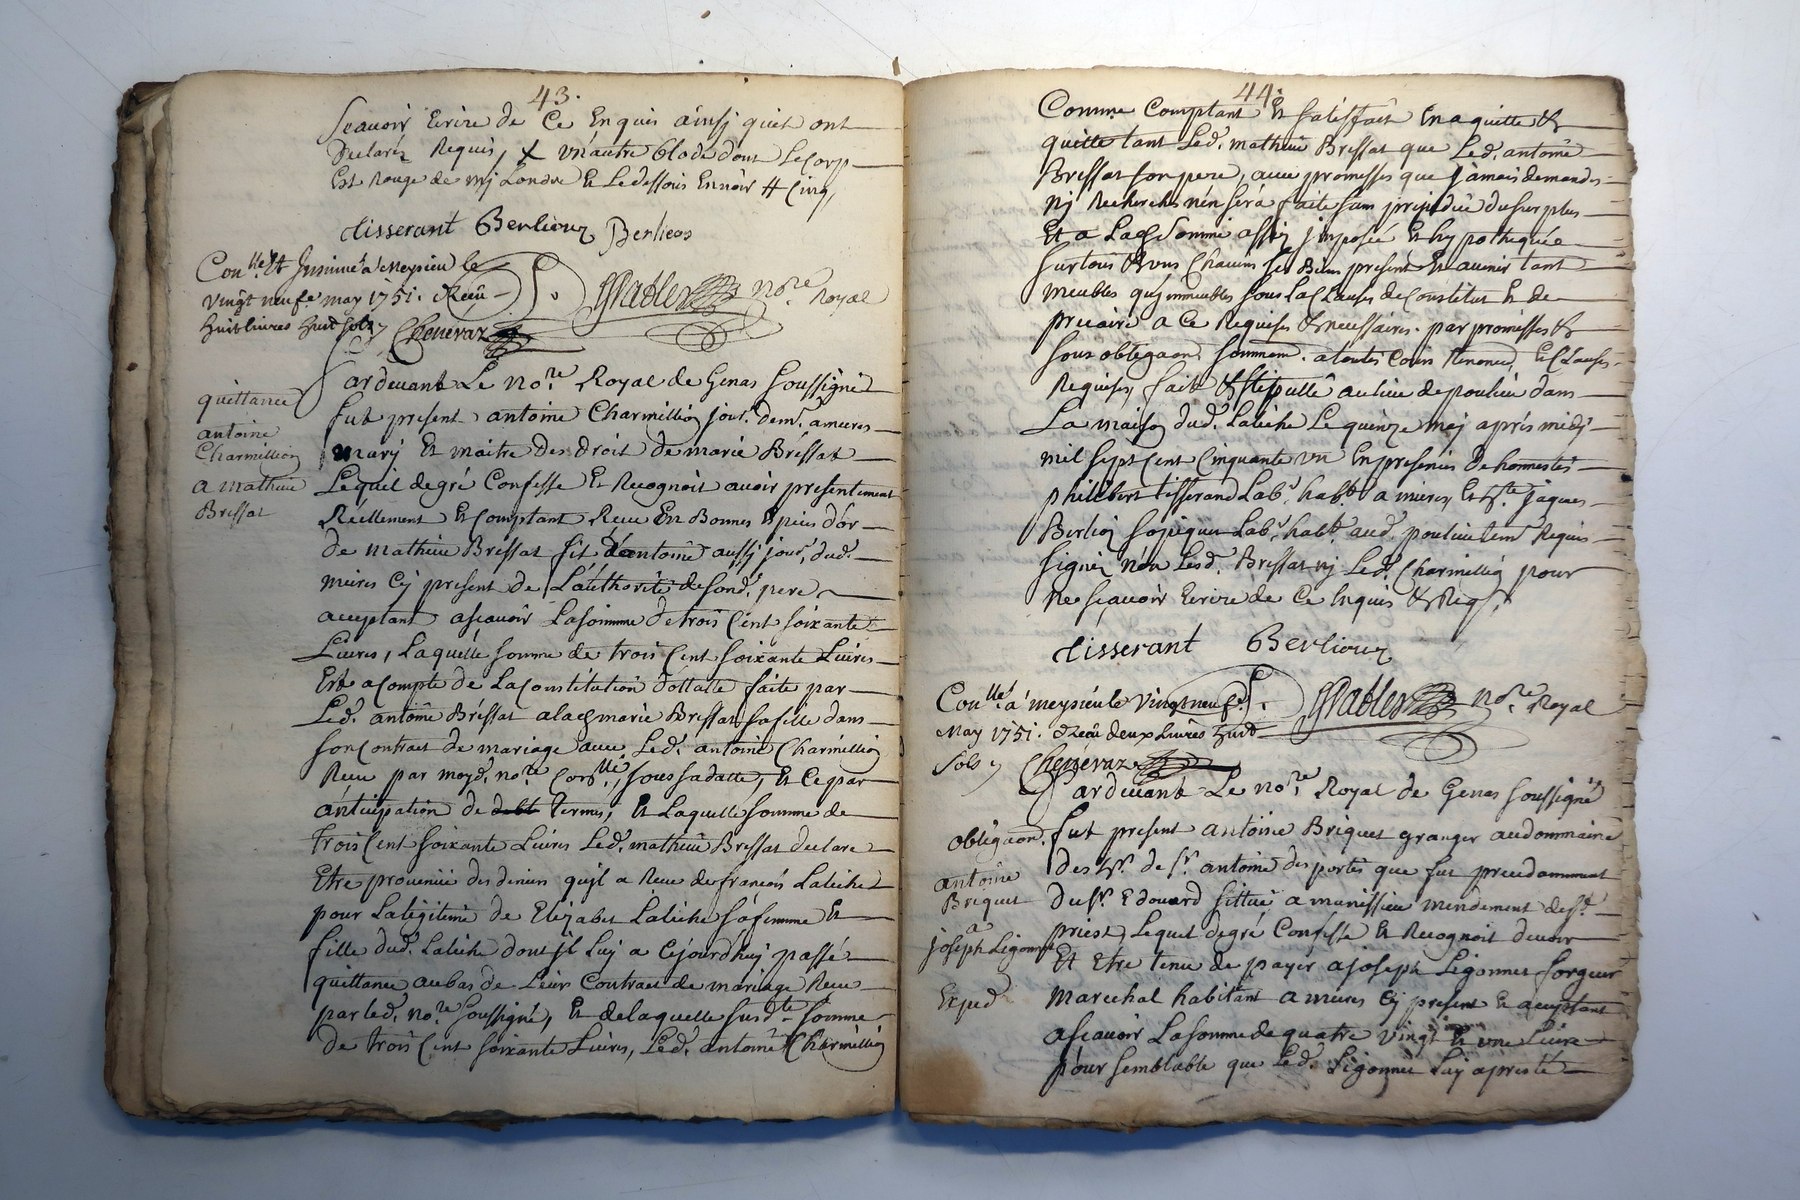 43.
Scavoir Ecrire de Ce Enquis ainsj quiet ont
Declarez Requis, x un autre blode dont Le Corp
Est Rouge de mj Londre Et Le dessous En noir # Cinq,
tisserant Berlioux Berlieos
Con.lle Et Insinué a Meysieu le
vingt neufe may 1751. Reçu
huit livres huit sols
Chenevaz
no.re Royal
quittance
antoine
Charmillioz
a mathieu
Bressat
Pardevant Le No.re Royal de Genas soussigné
fut present antoine Charmillioz jour.r dem.t a mieres
mary Et maitre des droit de marie Bressat
Lequel de gré Confesse Et Recognoit avoir presentement
Reellement Et Comptant Receu En Bonnes Espèces d'or
de mathieu Bressat fils d'antoine aussj jour.r dud.
mieres Cy present de L'authorité de son d. pere
acceptant ascavoir La somme de trois Cent soixante
Livres, Laquelle somme de trois Cent soixante Livres
Est a compte de La Constitution dottalle faite par
Led. antoine Bressat a lad marie Bressat sa fille dans
son Contrat de mariage avec Led. antoine Charmillioz
Receu par moyd. no.re Con.lle sous sa datte, Et Ce par
anticipation de termes, Et Laquelle somme de
trois Cent soixante Livres Led. mathieu Bressat declare
Etre provenüe des deniers qu'jl a Receu de francois Laliche
pour La legitime de Elizabet Laliche sa femme Et
fille dud. Laliche dont jl Luy a Cejourd'huy passé
quittance au bas de Leur Contrat de mariage Receu
par led. no.re soussigné, Et de laquelle susd.te somme
de trois Cent soixante Livres, Led. antoine Charmillioz
44.
Comme Comptant Et satisfait En a quitté Et
quitte tant Led. mathieu Bressat que Led. antoine
Bressat son pere, avec promesses que jamais demande
Nj Recherche n'en sera faite sans prejudice du surplus
Et a Lad somme assez jmposée Et hypothequée
sur tous Et uns Chacuns ses Biens present Et avenir tant
meubles qu'jmmeubles sous La Clauses de Constitut Et de
precaire a Ce Requises Et necessaires. par promesses Et
sous obligaon. a toutes Cours Renonce, Et Clauses
Requises, fait Et stipullé au lieu de poulieu dans
La maison dud. Laliche Le quinze maj après midj
mil sept Cent Cinquante un En presences de honnestes
philibert tisserand Lab.r hab.t a mieres, Et S.r jaques
Berlioz Lab.r hab.t aud. poulieu tem. Requis
signez non Lesd. Bressat nj Led. Charmillioz pour
ne sçavoir Ecrire de Ce Enquis Et Req.
tisserant Berlioux
Con.lle a meysieu le vingt neuf
May 1751. Reçu deux Livres huit
sols
Chenevaz
no.re Royal
obligaon.
antoine
Briquet
a
joseph Ligonnet
Exped
Pardevant Le No.re Royal de Genas soussigné
fut present antoine Briquet granger au dommaine
des h.rs de S.r antoine desportes que fut precedamment
du S.r Edouard sittué a manissieu mendement de S.t
priest, Lequel de gré Confesse Et Recognoit devoir
Et Etre tenu de payer a joseph Ligonnet forgeur
marechal habitant a mieres Cy present Et acceptant
ascavoir La somme de quatre vingt Et une Livre
pour semblable que Led. Ligonnet Luy a presté